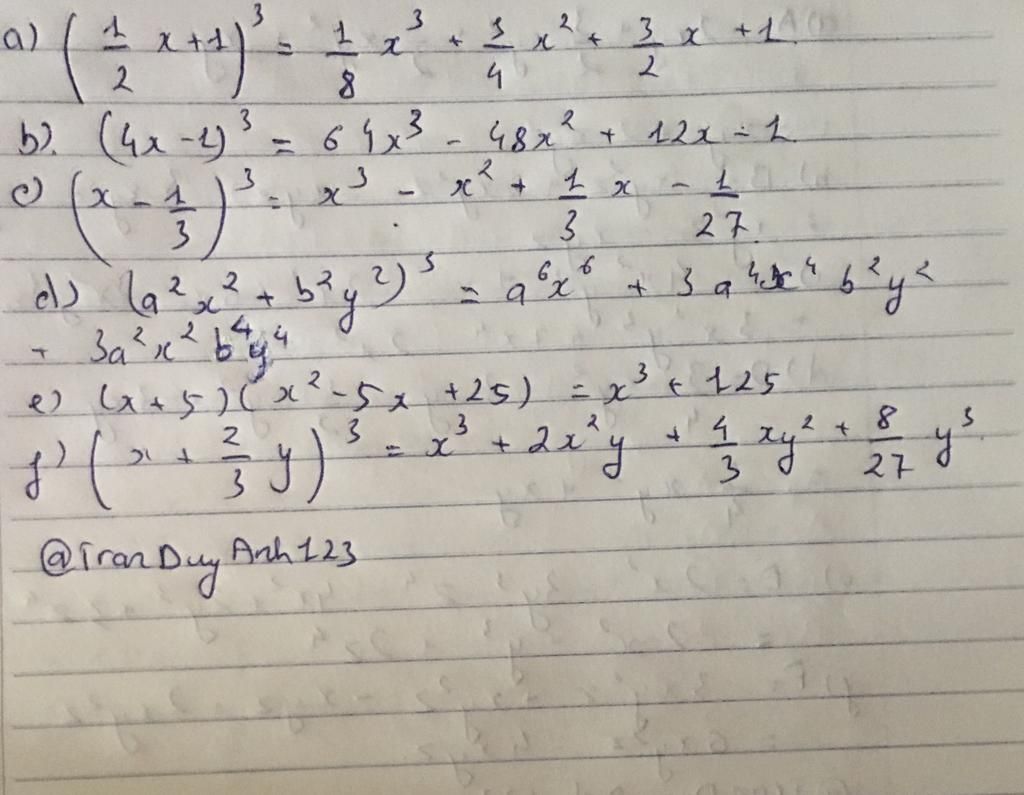 a) (1/2 x+1)³ = 1/8 x³ + 3/4 x² + 3/2 x +1.
b). (4x -1)³ = 64x³ - 48x² + 12x - 1
c) (x - 1/3)³ = x³ - x² + 1/3 x - 1/27.
d) (a²x² + b²y²)³ = a⁶x⁶ + 3a⁴x⁴ b²y²
+ 3a²x² b⁴y⁴
e) (x+5)(x²-5x +25) = x³ + 125
f) (x + 2/3 y)³ = x³ + 2x²y + 4/3 xy² + 8/27 y³.
@TranDuyAnh123